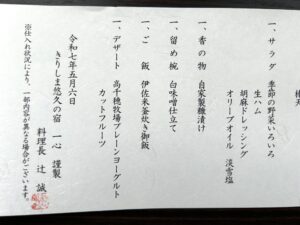 一、サラダ 季節の野菜いろいろ
生ハム
胡麻ドレッシング
オリーブオイル 淡雪塩
一、香の物 自家製糠漬け
一、留め椀 白味噌仕立て
一、ご飯 伊佐米釜炊き御飯
一、デザート 高千穂牧場プレーンヨーグルト
カットフルーツ
令和七年五月六日
きりしま悠久の宿 一心 謹製
料理長 辻 誠
※仕入れ状況により、一部内容が異なる場合がございます。